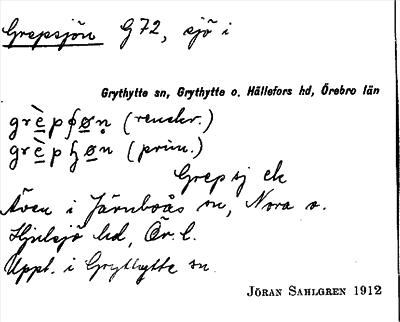 Grepsjön G72, sjö i
Grythytte sn, Grythytte o. Hällefors hd, Örebro län
grèpʃøn (renskr.)
grèpʃøn (prim.)
Grepsj ek
Även i Järnboås sn, Nora o.
Hjulsjö hd, Ör. l.
Uppt. i Grythytte sn.
JÖRAN SAHLGREN 1912